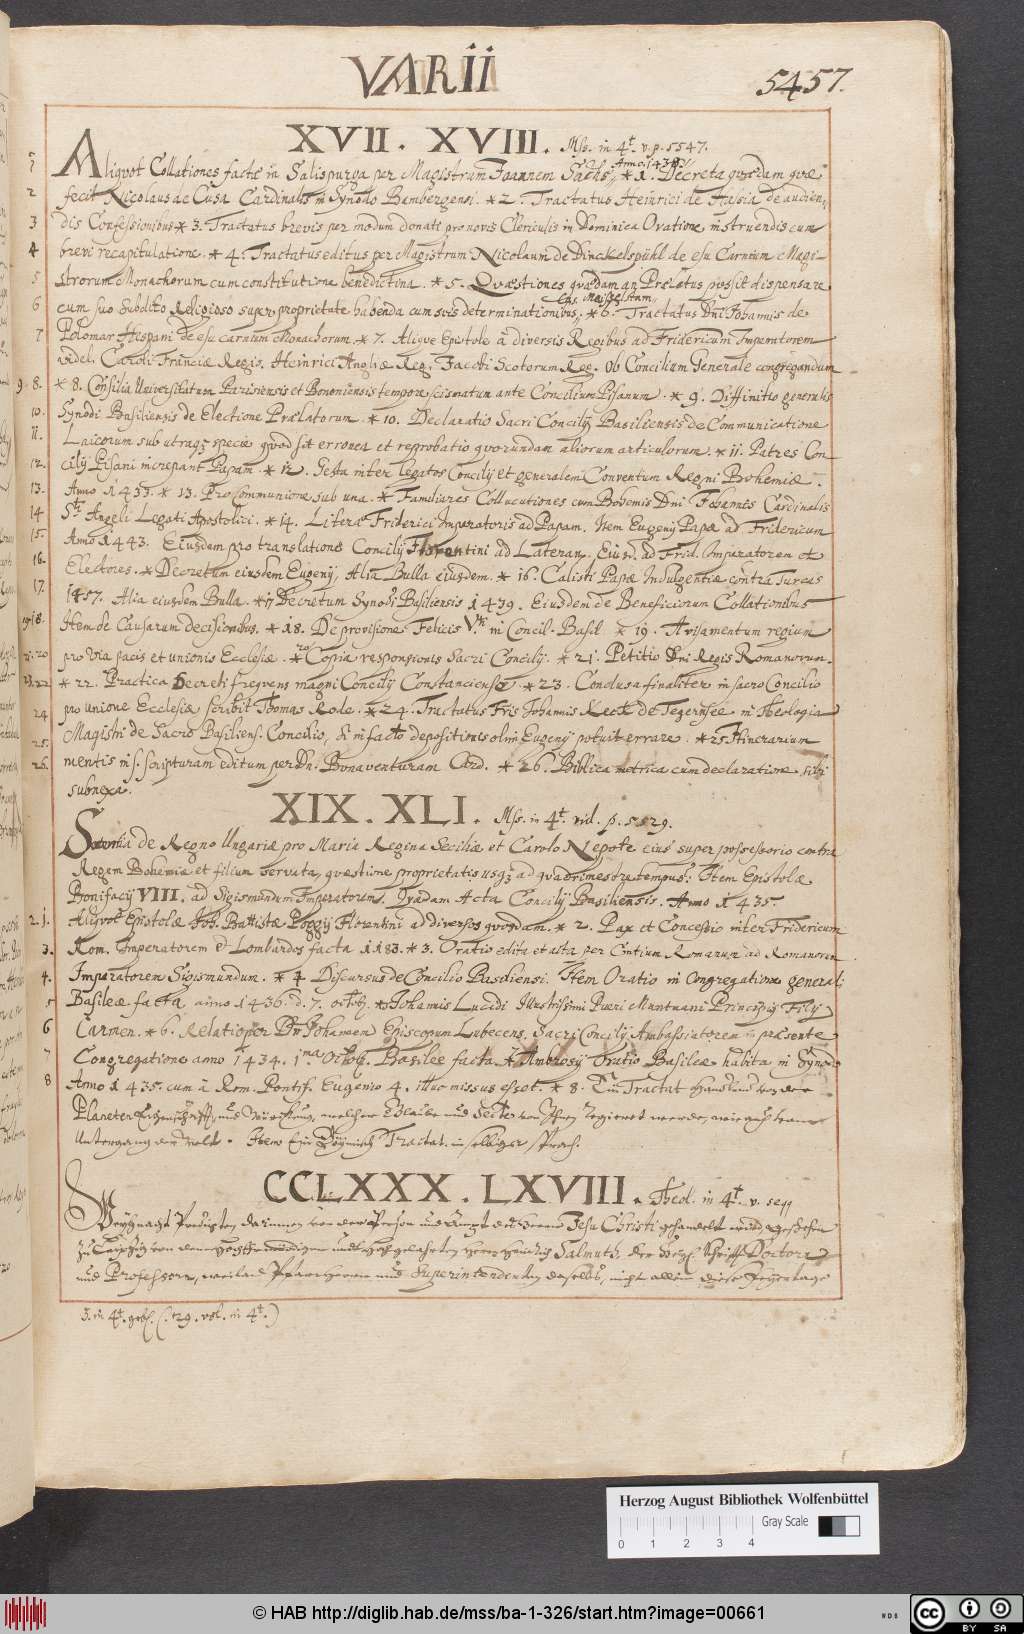 VARII
5457.
XVII. XVIII. Mss. in 4t. v. p. 5547.
Aliquot Collationes factæ in Salispurga per Magistrum Joannem Sachs, * 1. Decreta quædam quæ
fecit Nicolaus de Cusa Cardinalis in Synodo Bambergensi. * 2. Tractatus Heinrici de Hassia de audien-
dis Confessionibus * 3. Tractatus brevis per modum donati pro novis Clericulis in Dominica Oratione instruendis cum
brevi recapitulatione. * 4. Tractatus editus per Magistrum Nicolaum de Dinckelspühl de esu Carnium Magi-
strorum Monachorum cum constitutione benedictina. * 5. Quæstiones quædam an Prælatus possit dispensare
cum suo Subdito Religioso super proprietate habenda cum suis determinationibus. * 6. Tractatus Dni Johannis de
Polomar Hispani de esu carnium Monachorum. * 7. Aliquæ Epistolæ à diversis Regibus ad Fridericum Imperatorem
videl. Caroli Franciæ Regis. Heinrici Angliæ Reg. Jacobi Scotorum Reg. Ob Concilium Generale congregandum
* 8. Consilia Universitatum Parisiensis et Bononiensis tempore scismatum ante Concilium Pisanum. * 9. Diffinitio generalis
Synodi Basiliensis de Electione Prælatorum. * 10. Declaratio Sacri Concilij Basiliensis de Communicatione
Laicorum sub utraq3 specie quod sit erronea et reprobatio quorundam aliorum articulorum. * 11. Patres Con
cilij Pisani increpant Papam. * 12. Gesta inter legatos Concilij et generalem Conventum Regni Bohemiæ.
Anno 1433. * 13. Pro Communione sub una. * Familiares Collucutiones cum Bohemis Dni Johannis Cardinalis
Sti Angeli Legati Apostolici. * 14. Litera Friderici Imperatoris ad Papam. Item Eugenij Papæ ad Fridericum
Anno 1443. Eiusdem pro translatione Concilij Florentini ad Lateran. Eiusd. ad Frid. Imperatorem et
Electores. * Decretum eiusdem Eugenij. Alia Bulla eiusdem. * 16. Calisti Papæ Indulgentiæ contra Turcas
1457. Alia eiusdem Bulla. * 17 Decretum Synodi Basiliensis 1439. Eiusdem de Beneficiorum Collationibus
Item de Causarum decisionibus. * 18. De provisione Felicis Vti in Concil. Basil * 19. Avisamentum regium
pro via pacis et unionis Ecclesiæ. * 20 Copia responsionis Sacri Concilij. * 21. Petitio Dni Regis Romanorum.
* 22. Practica Decreti frequens magni Concilij Constanciense * 23. Conclusa finaliter in sacro Concilio
pro unione Ecclesiæ scribit Thomas Rode. * 24. Tractatus Fris Johannis Keck de Tegernsee in Theologia
Magistri de Sacro Basiliens. Concilio, & in facto depositionis olim Eugenij potuit errare. * 25. Itinerarium
mentis in s. scripturam editum per Dn. Bonaventuram Card. * 26. Biblica metrica cum declaratione sibi
subnexa.
XIX. XLI. Mss. in 4t. vid. p. 5529.
Sententia de Regno Ungariæ pro Maria Regina Seciliæ et Carolo Nepote eius super possessorio contra
Regem Bohemiæ et filium servata, quæstione proprietatis usq3 ad quadrimestre tempus: Item Epistolæ
Bonifacij VIII. ad Sigismundum Imperatorem. Quædam Acta Concilij Basiliensis. Anno 1435.
Aliquot Epistolæ Joh. Battistæ Poggij Florentini ad diversos quosdam. * 2. Pax et Concessio inter Fridericum
Rom. Imperatorem & Lombardos facta 1183. * 3. Oratio edita et acta per Cintium Romanum ad Romanorum
Imperatorem Sigismundum. * 4. Discursus de Concilio Basiliensi. Item Oratio in Congregatione generali
Basileæ facta anno 1436. d. 7. octob. * Johannis Lucidi Illustrissimi Pueri Mantuani Principis Filij
Carmen. * 6. Relatio per Dn Johannem Episcopum Lubecens. Sacri Concilij Ambassiatorem in præsente
Congregatione anno 1434. 1ma Octob. Basileæ facta. * Ambrosij Oratio Basileæ habita in Synodo
Anno 1435. cum à Rom. Pontif. Eugenio 4. illuc missus esset. * 8. Ein Tractat
Planeten
Untergang der Welt. Item Ein Tractat. in selbiger sprach.
CCLXXX. LXVIII. Theol. in 4t. v. seqq
Weyhnacht Predigten darinnen von der Person und Ampt des Herrn Jesu Christi gehandelt wird
zu Leipzig Salmuth, der Heyl. Schrifft Doctorn
und Professorn, weiland Pfarrherrn und Superintendenten daselbst, nicht allein diese Feyertage
3. in 4t.
1
2
3
4
5
6
7
9. 8.
10.
11.
12.
13.
14
15.
16.
17.
18.
20
24
25.
26.
2. 1.
3.
4.
5
6
7
8
Herzog August Bibliothek Wolfenbüttel
Gray Scale
0 1 2 3 4
© HAB http://diglib.hab.de/mss/ba-1-326/start.htm?image=00661
WDB
cc BY SA